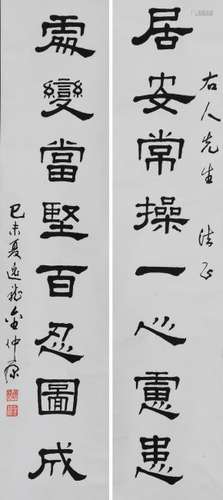 居安常操一心慮患
右人先生 法正
處變當堅百忍圖成
己未夏逸
仲康